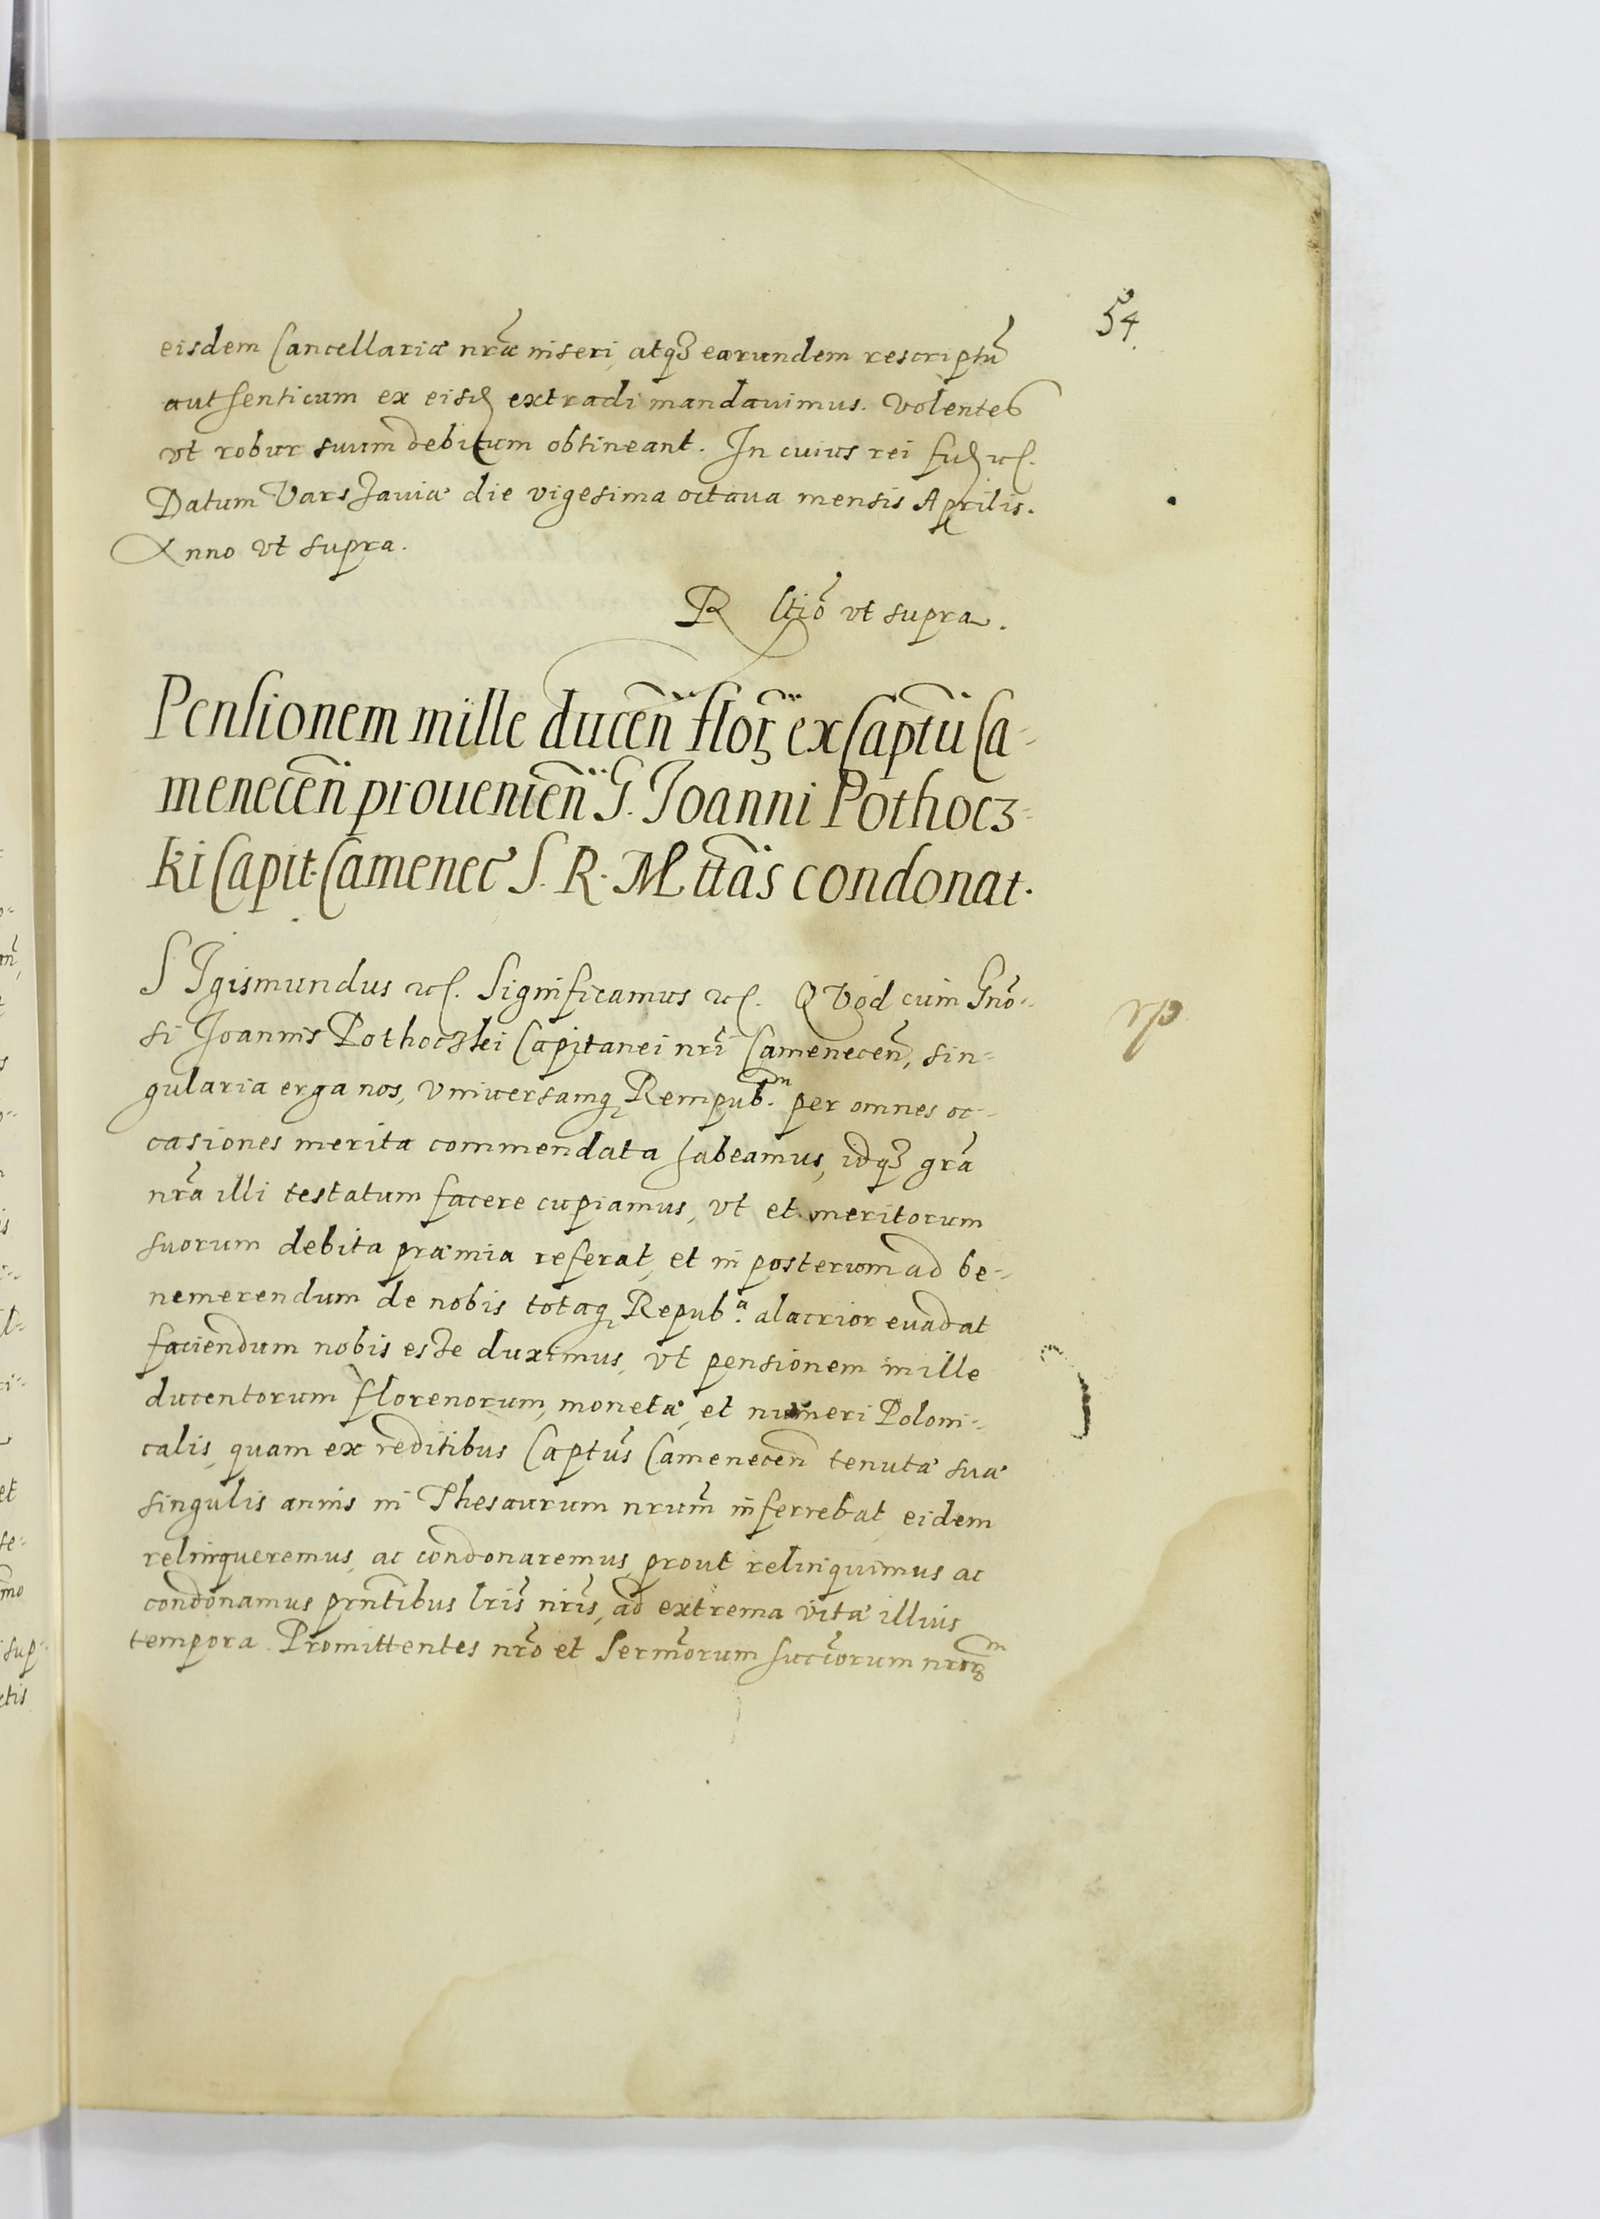 54.
eisdem Cancellariæ nr̃æ inseri, atqʒ earundem rescriptũ
authenticum ex eisd extradi mandauimus. Volentes
vt robur suum debitum obtineant. In cuius rei fid etc.
Datum Varshauiæ die vigesima octaua mensis Aprilis.
Anno vt supra.
R ltiõ vt supra.
Pensionem mille ducen̄ flor̃ ex Captũ Ca-
menecen̄ prouenien̄ G. Joanni Pothocz-
ki Capit. Camenec̃ S. R. Mttas condonat.
SIgismundus etc. Significamus etc. QVod cum Gnõ-
si Joannis Pothoczkei Capitanei nr̃i Camenecen̄, sin-
gularia erga nos, vniuersamq Rempub.m per omnes oc-
casiones merita commendata habeamus, idqʒ gr̃a
nr̃a illi testatum facere cupiamus, vt et meritorum
suorum debita præmia referat, et in posterum ad be-
nemerendum de nobis totaq Repub.a alacrior euadat
faciendum nobis esse duximus, vt pensionem mille
ducentorum florenorum, monetæ, et numeri Poloni-
calis, quam ex reditibus Captus̃ Camenecen̄ tenutæ suæ
singulis annis in Thesaurum nrum̃ inferrebat eidem
relinqueremus, ac condonaremus, prout relinquimus ac
condonamus prñtibus lris̃ nris̃, ad extrema vitæ illius
tempora. Promittentes nr̃o et Serm̃orum succ̃orum nror̃m